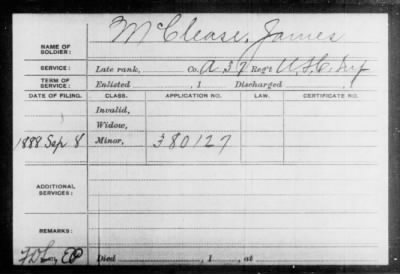 McClease, James
NAME OF SOLDIER:
SERVICE: Late rank, Co. A 37 Reg't U.S.C. Inf
TERM OF SERVICE: Enlisted , 1 Discharged , 1
DATE OF FILING. CLASS. APPLICATION NO. LAW. CERTIFICATE NO.
Invalid,
Widow,
1888 Sep 8 Minor, 380127
ADDITIONAL SERVICES:
REMARKS:
Died , 1 , at